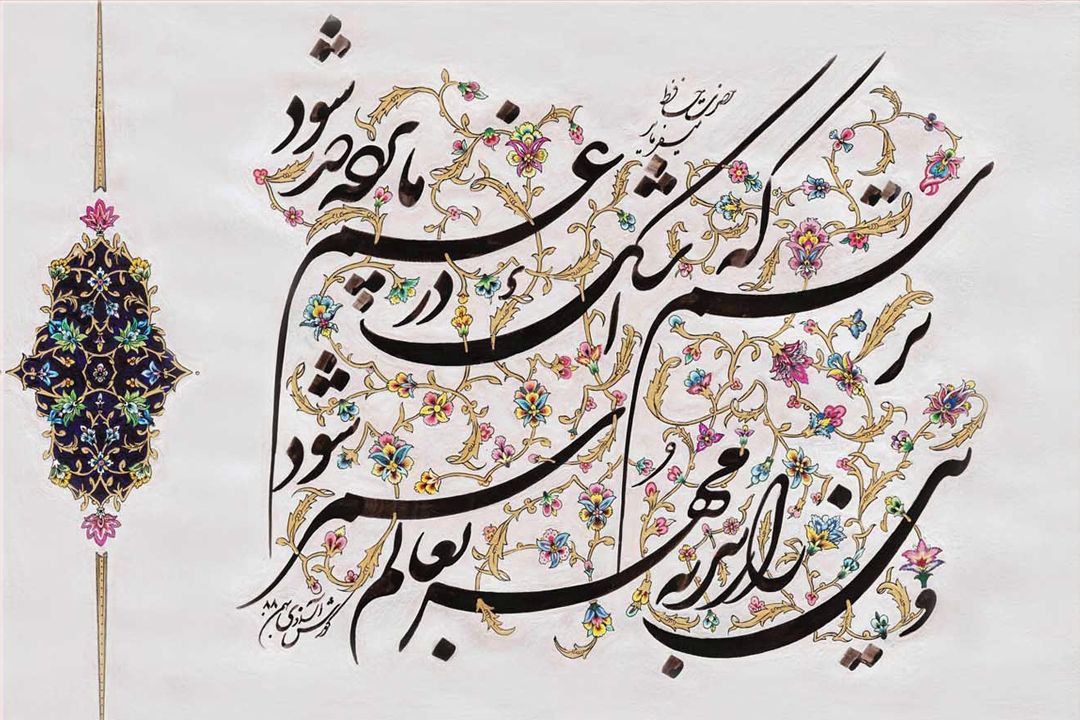 حضرت حافظ
میفرماید
ترسم که اشک در غم ما پرده در شود
وین راز سر به مهر بعالم سمر شود
بهمن ۸۸